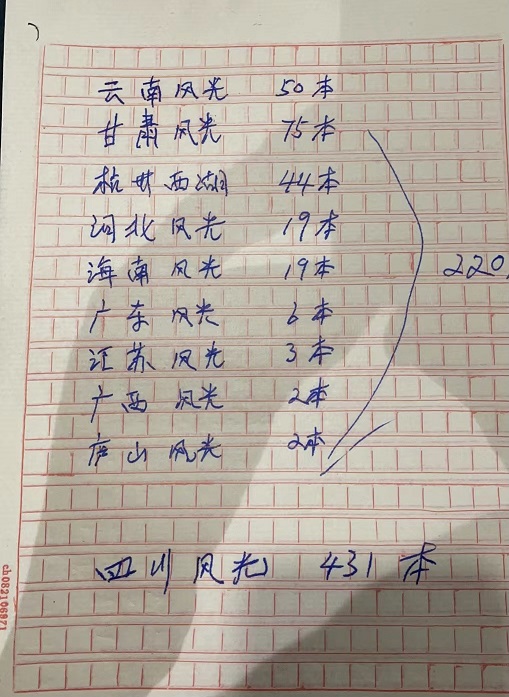 云南风光 50本
甘肃风光 75本
杭州西湖 44本
河北风光 19本
海南风光 19本
220
广东风光 6本
江苏风光 3本
广西风光 2本
庐山风光 2本
四川风光 431本
ch082106871